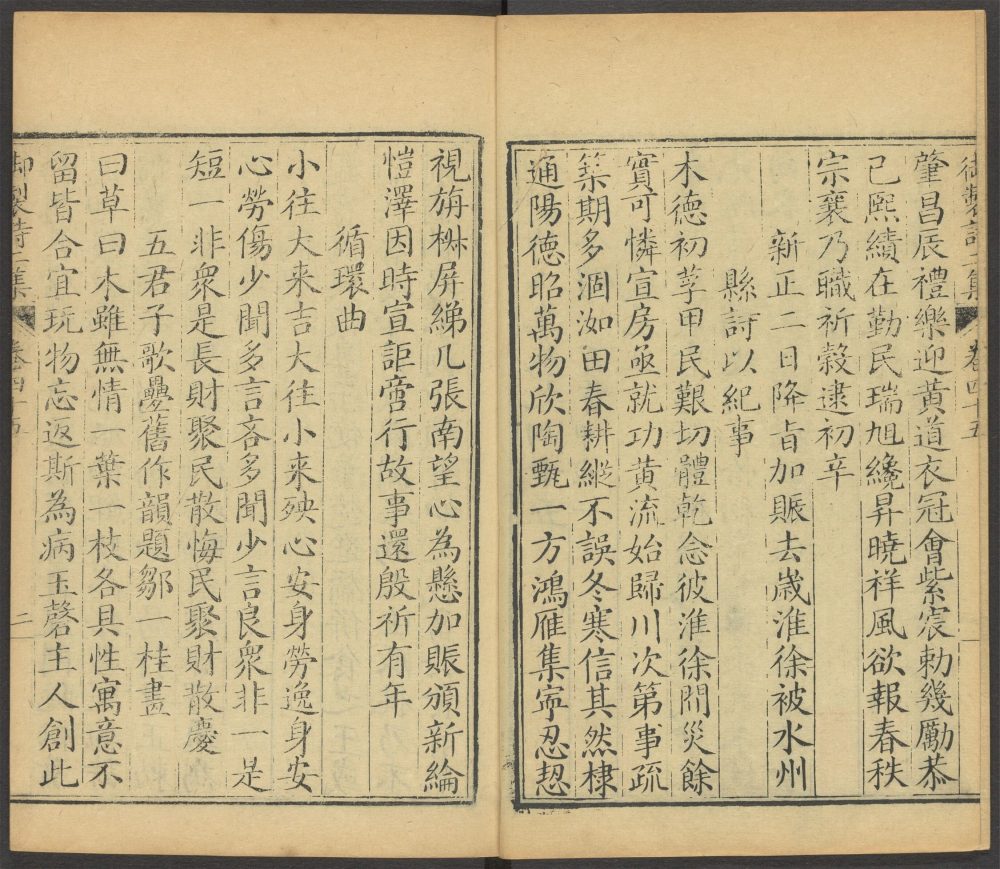 御製詩二集　卷四十五
肇昌辰禮樂迎黃道衣冠會紫宸勅幾勵恭
己熙績在勤民瑞旭纔昇曉祥風欲報春秩
宗襄乃職祈穀逮初辛
新正二日降旨加賑去歲淮徐被水州
縣詩以紀事
木德初莩甲民艱切體乾念彼淮徐間災餘
實可憐宣房亟就功黃流始歸川次第事疏
築期多涸洳田春耕縱不誤冬寒信其然棣
通陽德昭萬物欣陶甄一方鴻雁集寧忍恝
視旃楙屏綈几張南望心為懸加賑頒新綸
愷澤因時宣詎啻行故事還殷祈有年
循環曲
小往大来吉大往小来殃心安身勞逸身安
心勞傷少聞多言吝多聞少言良衆非一是
短一非衆是長財聚民散悔民聚財散慶
五君子歌疊舊作韻題鄒一桂畫
曰草曰木雖無情一葉一枝各具性寓意不
留皆合宜玩物忘返斯為病玉磬主人創此
御製詩二集　卷四十五　二